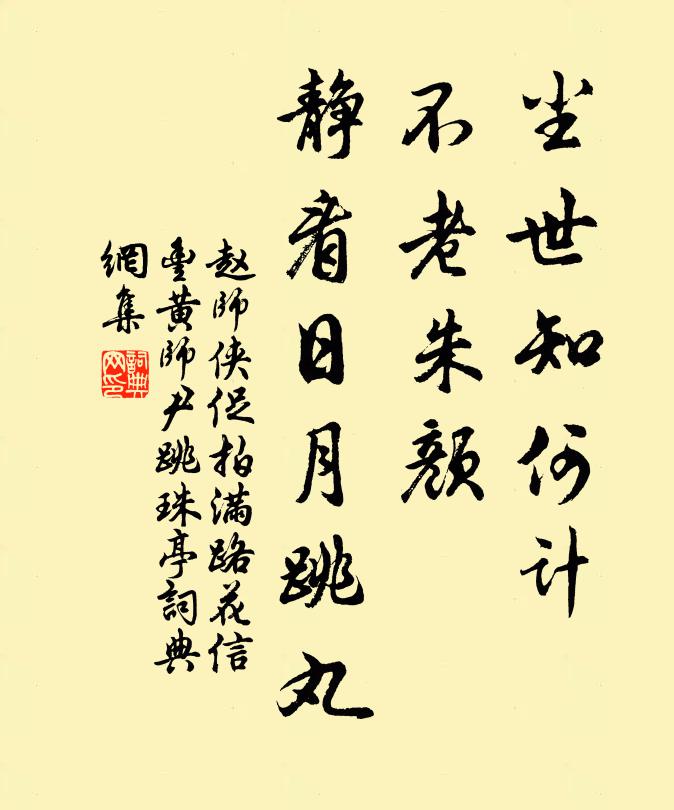 尘世知何计
不老朱颜
静看日月跳丸
赵師侠促拍滿路花信
豐黄師尹跳珠亭詞典
網集
詞典网印